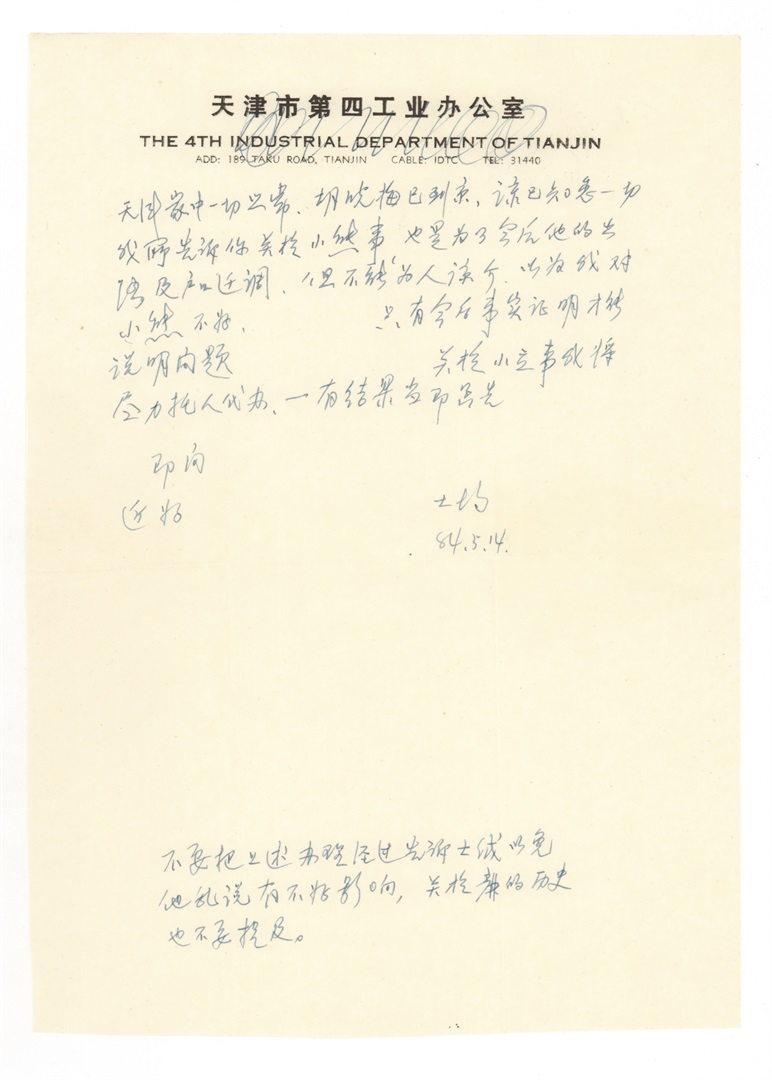 天津市第四工业办公室
THE 4TH INDUSTRIAL DEPARTMENT OF TIANJIN
ADD: 189, TAKU ROAD, TIANJIN CABLE: IDTC TEL: 31440
天津家中一切正常、胡晓梅已到京,谅已知悉一切
我所告诉你关于小然事 也是为了今后他的出
路及户口迁调、但不能为人误介、以为我对
小然不好、 只有今后事实证明才能
说明问题 关于小立事我将
尽力托人代办、一有结果当即写告
即问
近好
士均
84.5.14.
不要把上述办理经过告诉士钺以免
他乱说有不好影响,关于静的历史
也不要提及。